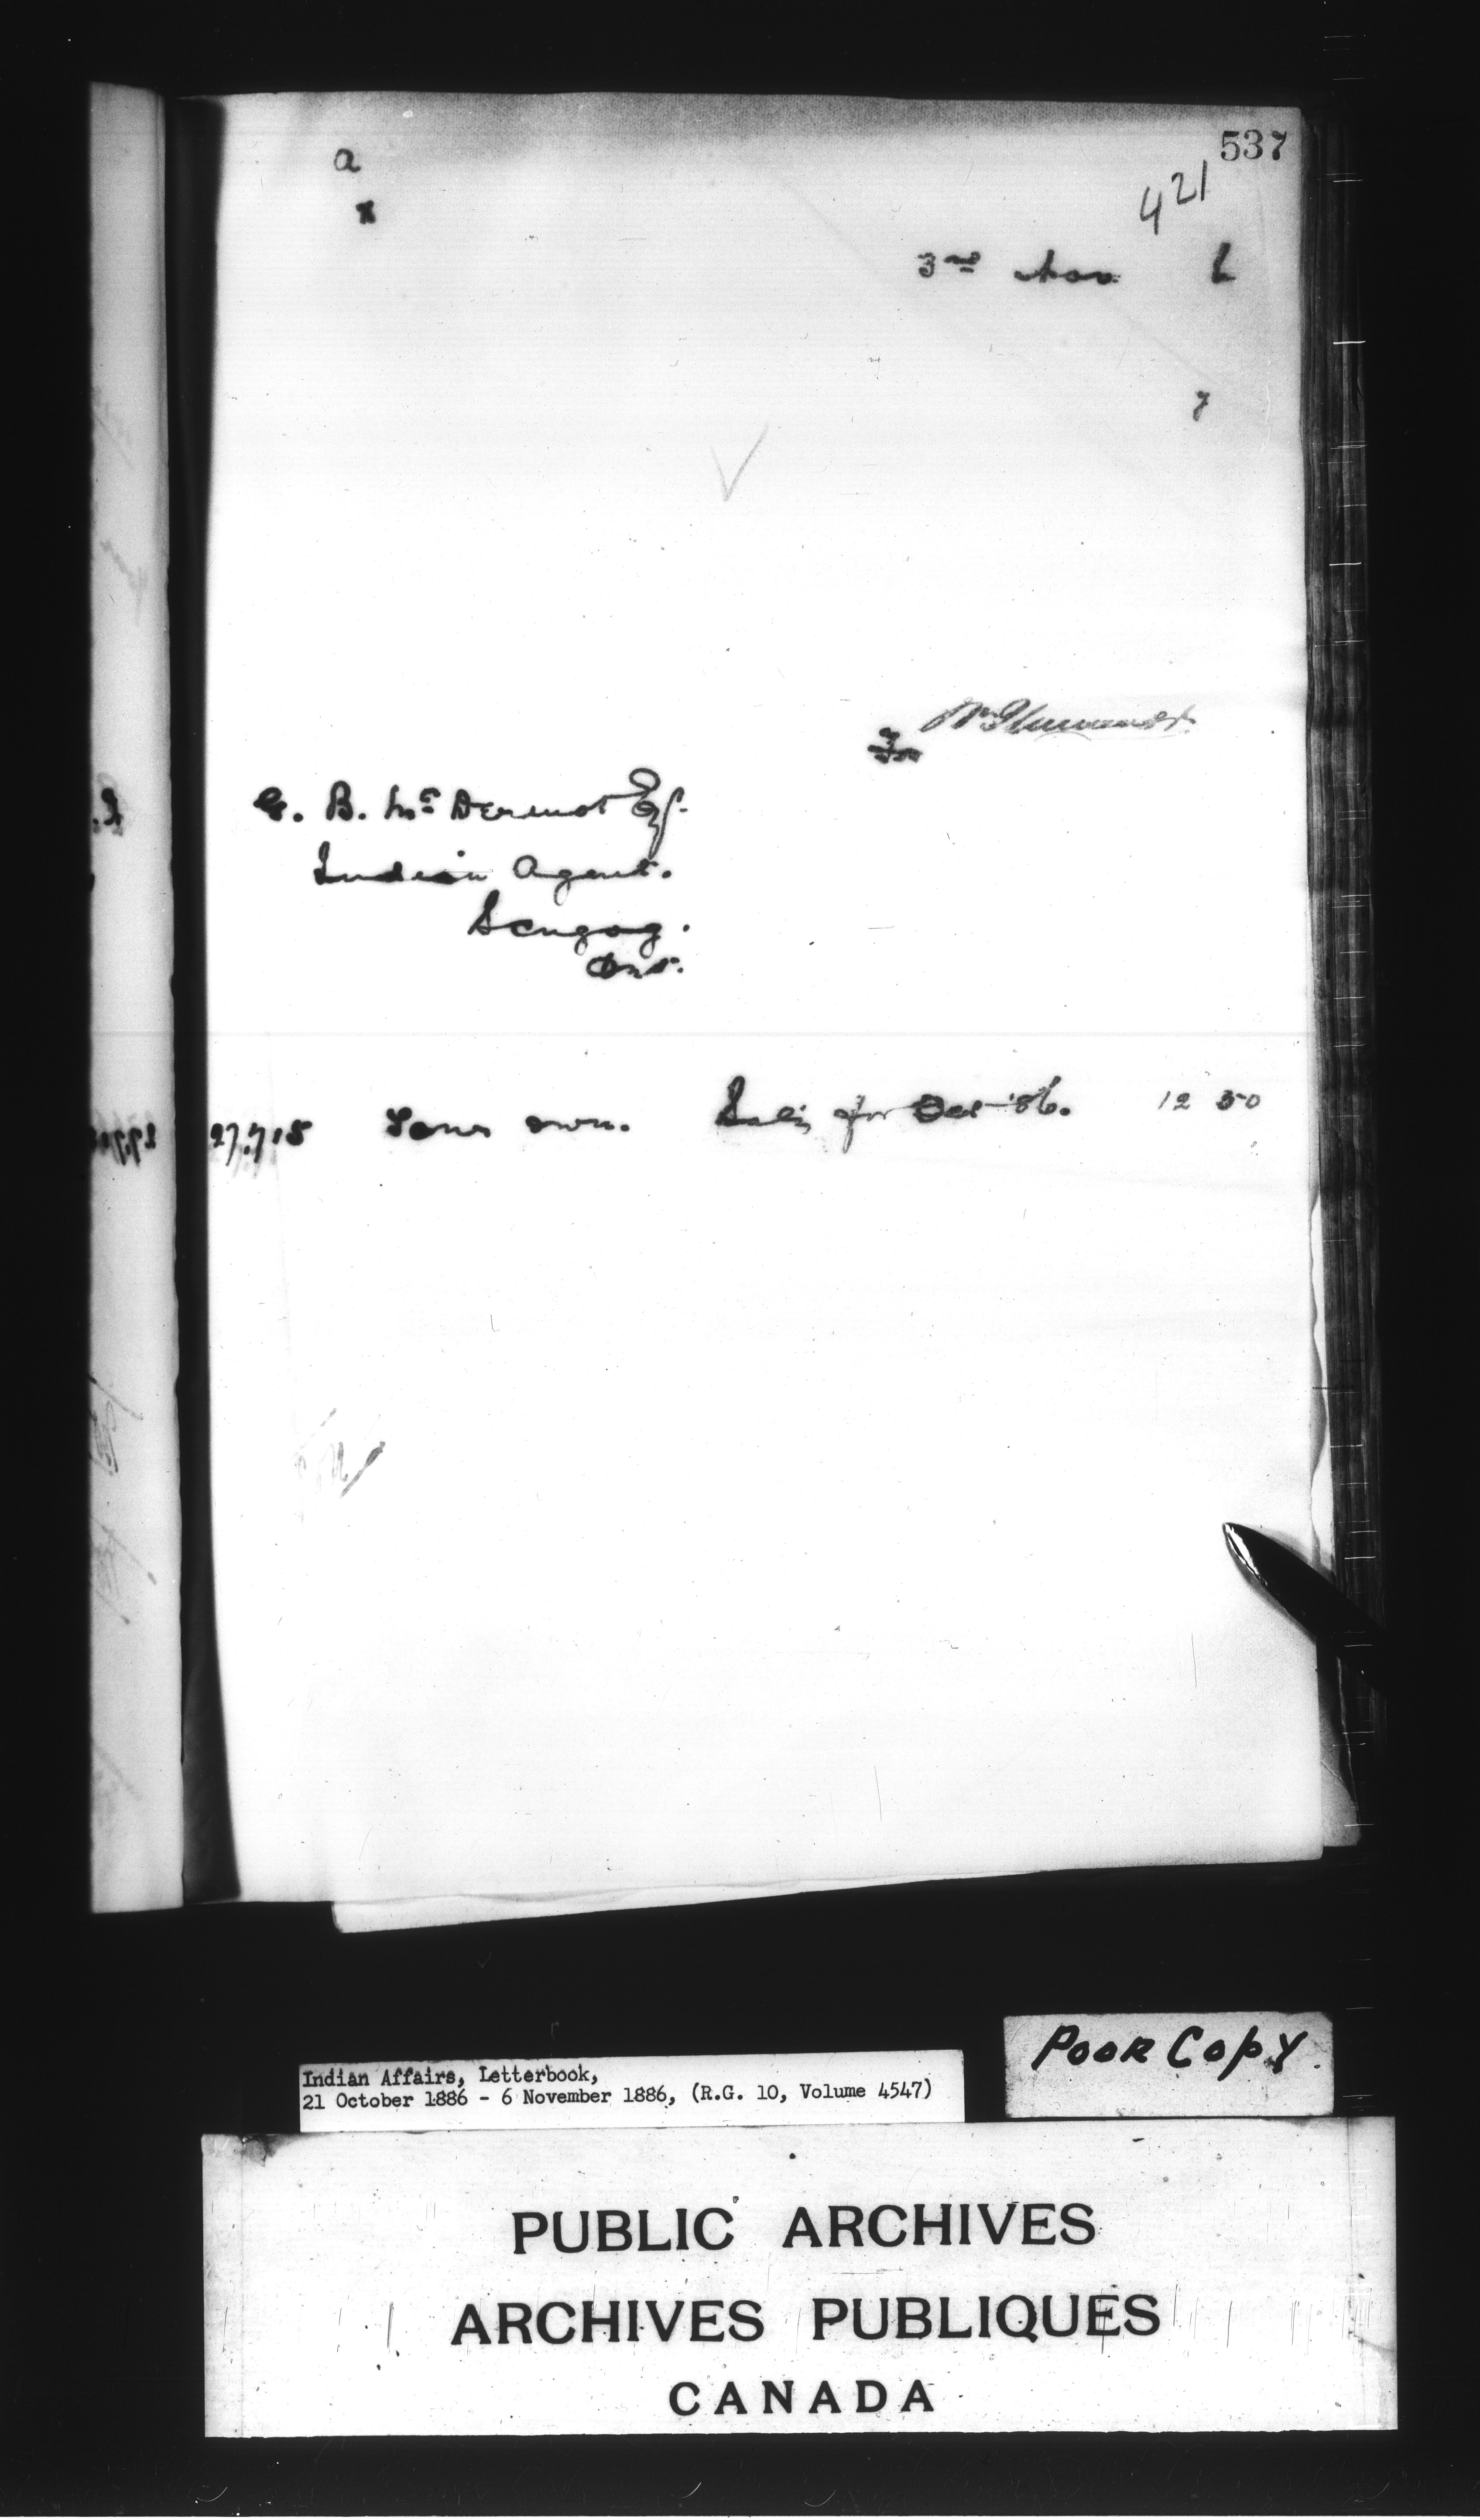 537
a
421
x
3rd Nov 6
7
For
G. B. McDermot Esq.
Indian Agent.
Scugog.
Ont.
27.718 Your own. Saly for Oct '86. 12 50
Poor Copy.
Indian Affairs, Letterbook,
21 October 1886 - 6 November 1886, (R.G. 10, Volume 4547)
PUBLIC ARCHIVES
ARCHIVES PUBLIQUES
CANADA